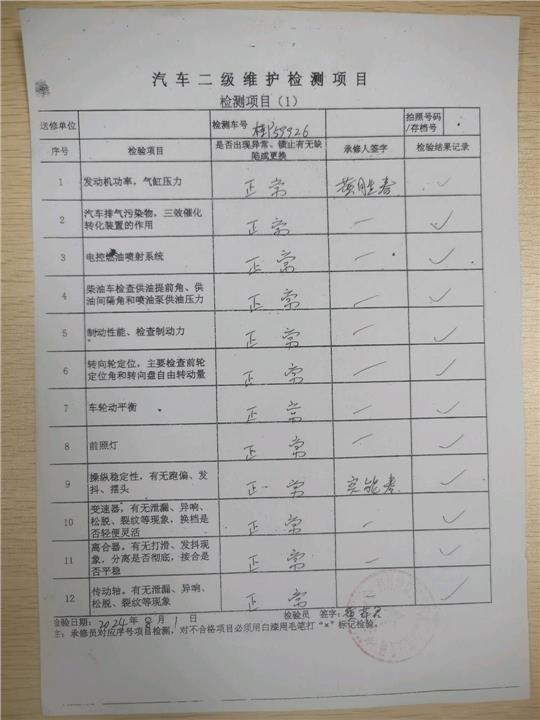 汽车二级维护检测项目
检测项目（1）
送修单位 检测车号 桂 59926 拍照号码/存档号
序号 检验项目 是否出现异常、锁止有无缺陷或更换 承修人签字 检验结果记录
1 发动机功率，气缸压力 正常 ✓
2 汽车排气污染物，三效催化转化装置的作用 正常 — ✓
3 电控燃油喷射系统 正常 — ✓
4 柴油车检查供油提前角、供油间隔角和喷油泵供油压力 正常 — ✓
5 制动性能、检查制动力 正常 — ✓
6 转向轮定位，主要检查前轮定位角和转向盘自由转动量 正常 — ✓
7 车轮动平衡 正常 — ✓
8 前照灯 正常 — ✓
9 操纵稳定性，有无跑偏、发抖、摆头 正常 ✓
10 变速器，有无泄漏、异响、松脱、裂纹等现象，换档是否轻便灵活 正常 — ✓
11 离合器。有无打滑、发抖现象，分离是否彻底，接合是否平稳 正常 — ✓
12 传动轴。有无泄漏、异响、松脱、裂纹等现象 正常 — ✓
检验日期：2024年8月1日 检验员 签字：
主：承修员对应序号项目检测，对不合格项目必须用白漆用毛笔打“×”标记检验。